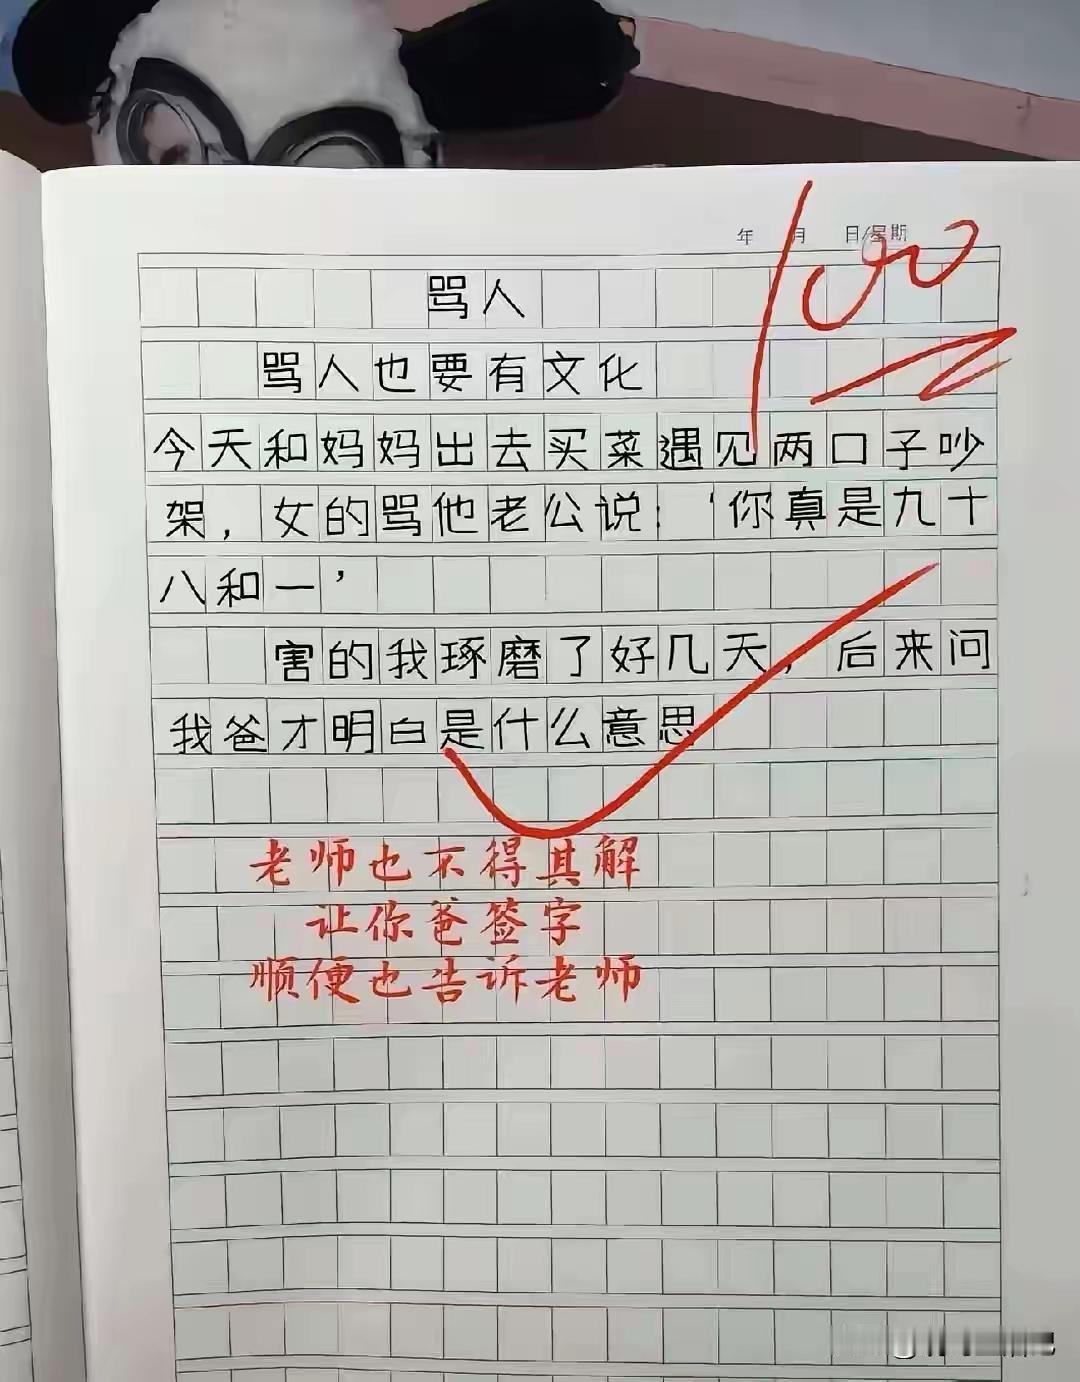 年 月 日/星期
100
骂人
骂人也要有文化
今天和妈妈出去买菜遇见两口子吵
架，女的骂他老公说：‘你真是九十
八和一’
害的我琢磨了好几天，后来问
我爸才明白是什么意思
老师也不得其解
让你爸签字
顺便也告诉老师